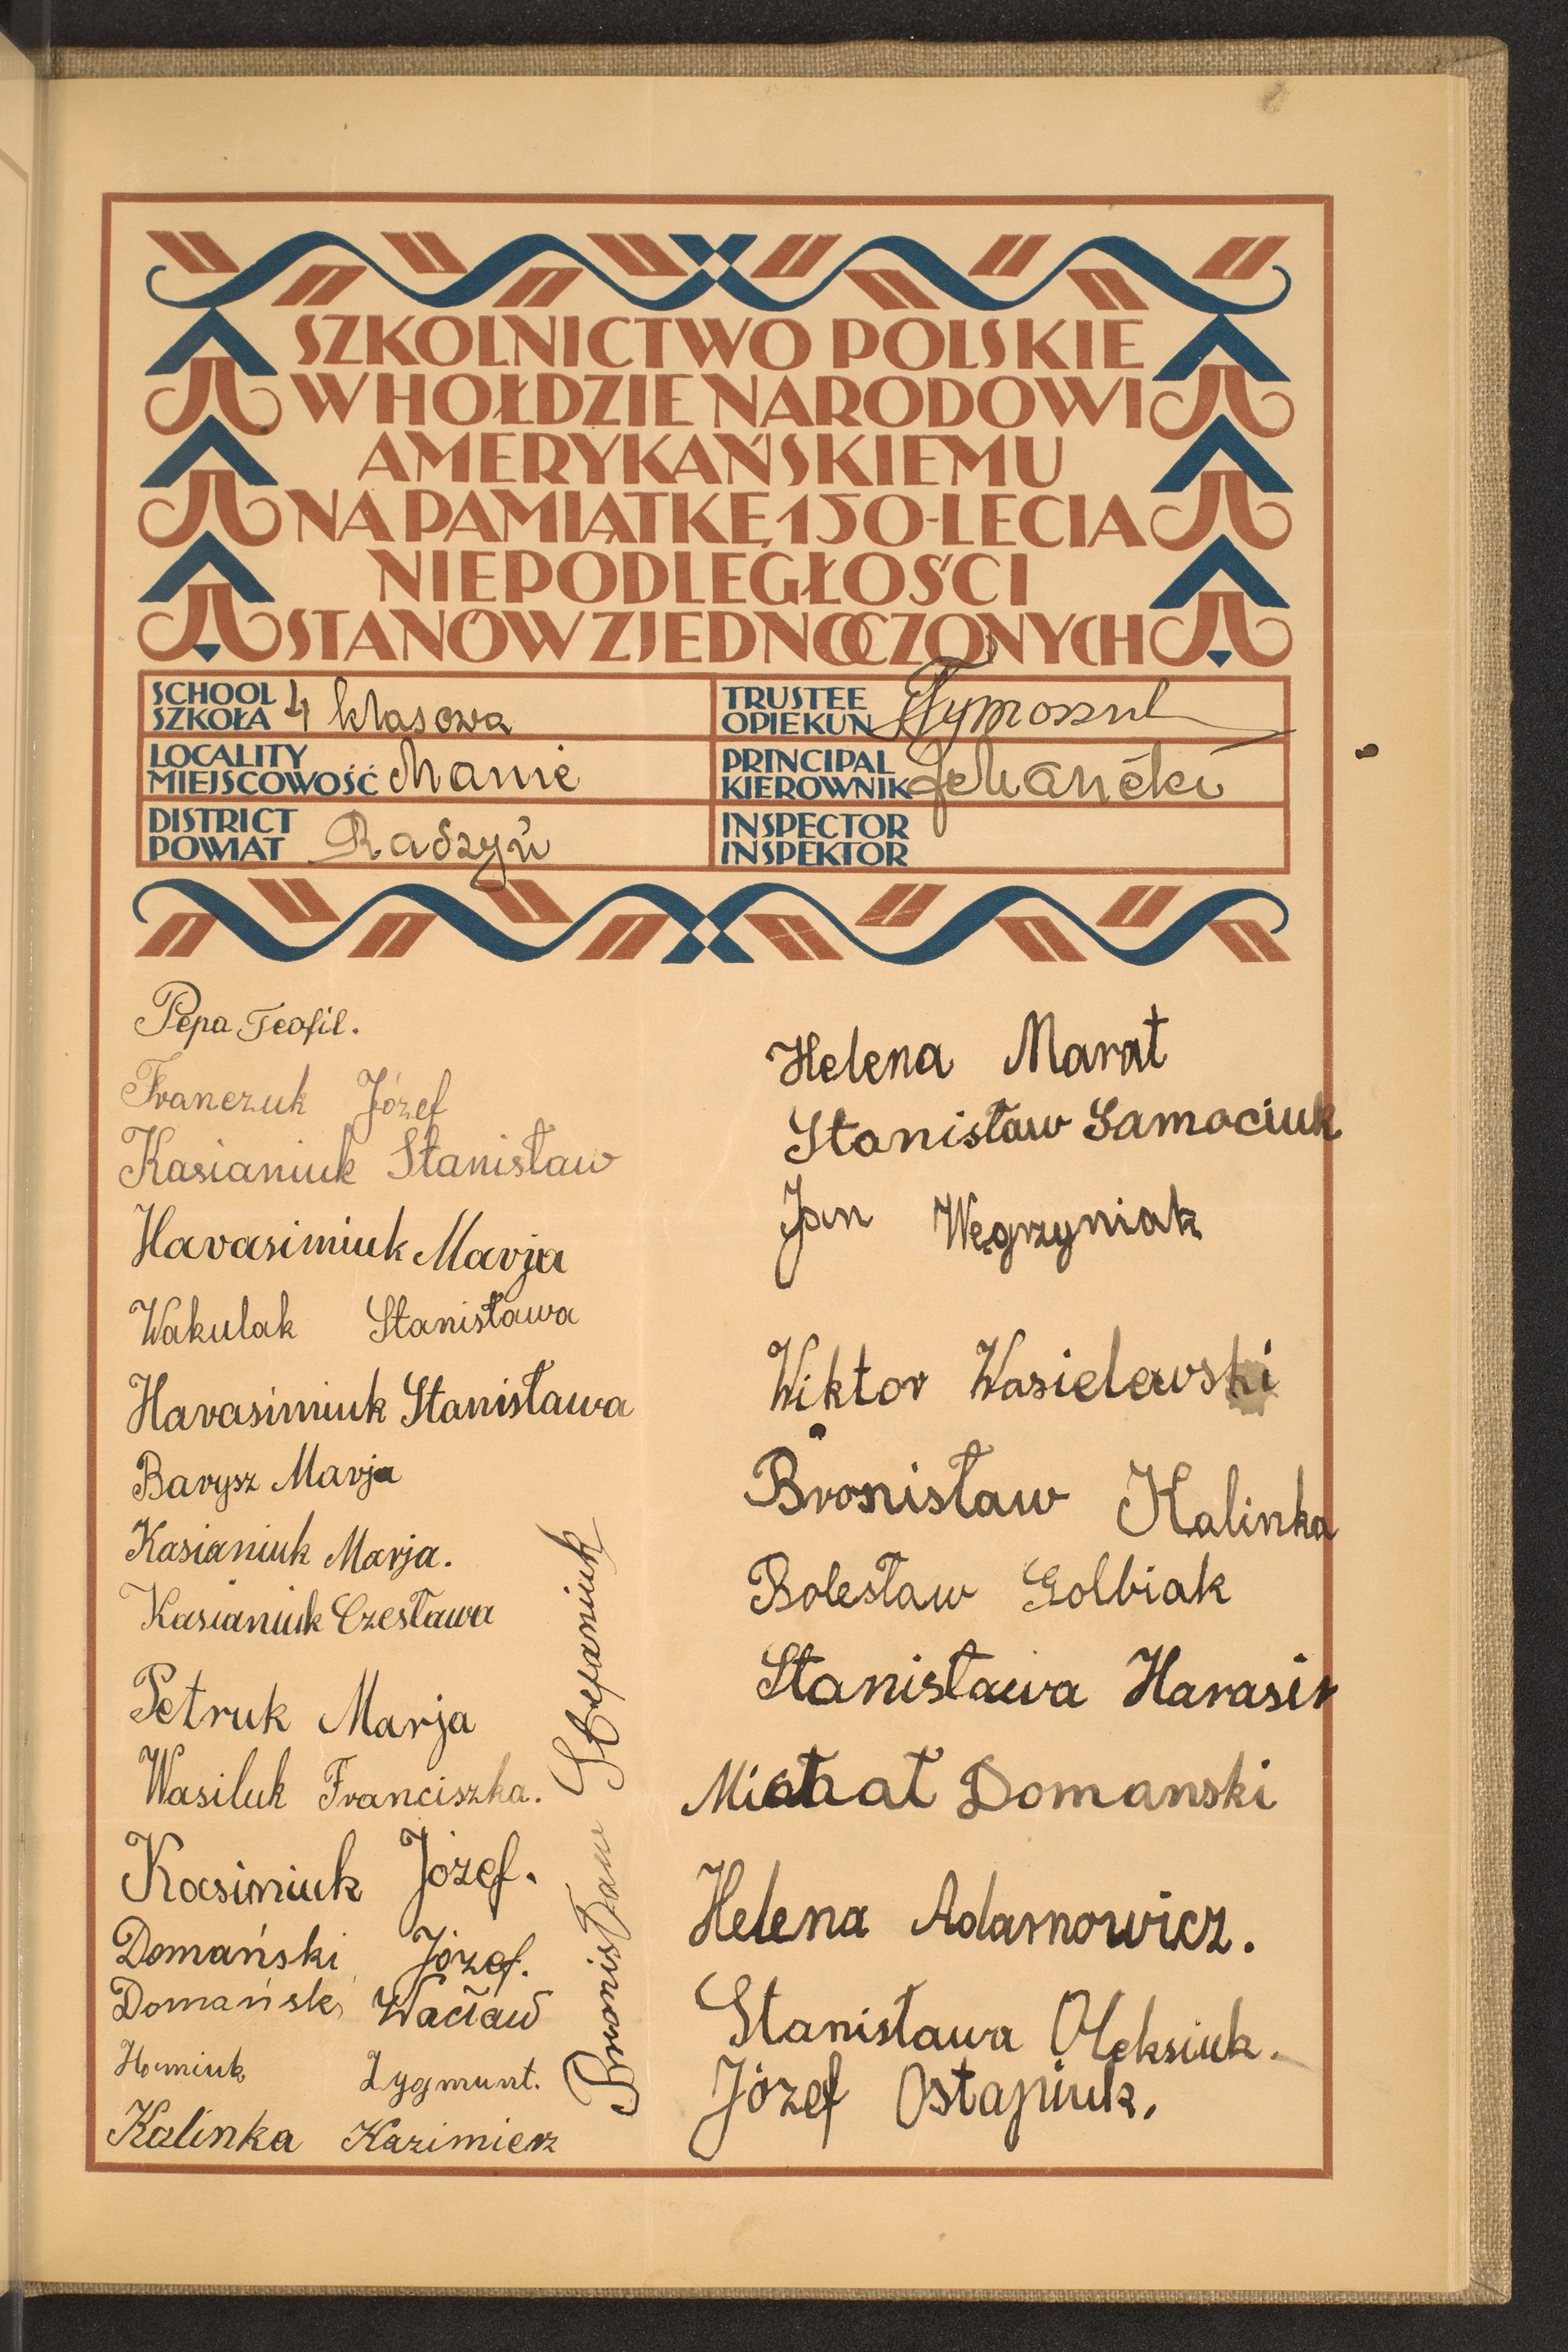 SZKOLNICTWO POLSKIE
W HOŁDZIE NARODOWI
AMERYKAŃSKIEMU
NA PAMIĄTKĘ 150-LECIA
NIEPODLEGŁOŚCI
STANÓW ZJEDNOCZONYCH
SCHOOL
SZKOŁA 4 klasowa
TRUSTEE
OPIEKUN
LOCALITY
MIEJSCOWOŚĆ Manie
PRINCIPAL
KIEROWNIK
DISTRICT
POWIAT Radzyń
INSPECTOR
INSPEKTOR
Pepa Teofil.
Iwanczuk Józef
Kasianiuk Stanisław
Harasimiuk Marja
Wakulak Stanisława
Harasimiuk Stanisława
Barysz Marja
Kasianiuk Marja.
Kasianiuk Czesława
Petruk Marja
Wasiluk Franciszka.
Kasimiuk Józef.
Domański Józef.
Domański Wacław
Zygmunt.
Kalinka Kazimierz
Bronisław Stefaniuk
Helena Marat
Stanisław Samociuk
Jan Węgrzyniak
Wiktor Wasielewski
Bronisław Kalinka
Bolesław Golbiak
Stanisława Harasir
Michał Domanski
Helena Adamowicz.
Stanisława Oleksiuk.
Józef Ostapiuk.